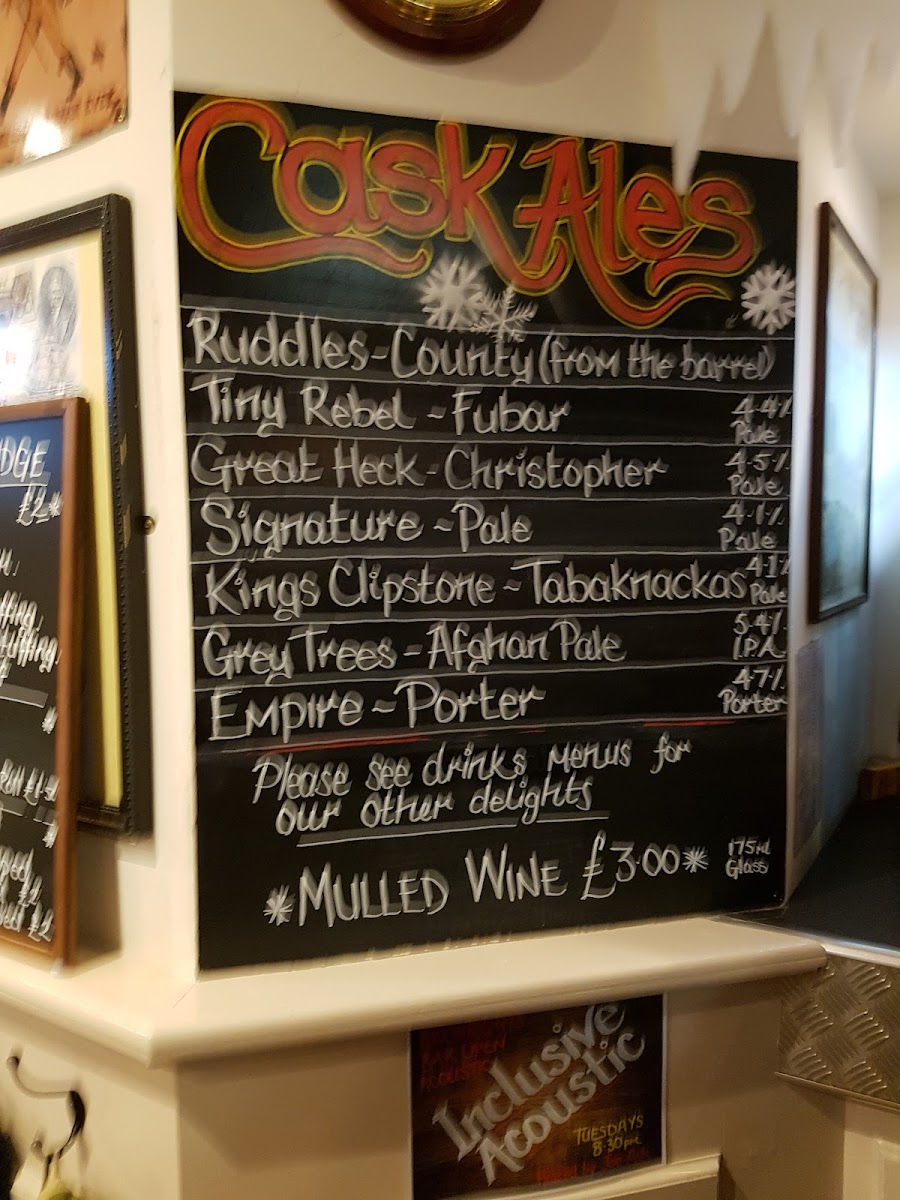 Cask Ales
Ruddles - County (from the barrel)
Tiny Rebel - Fubar 4.4% Pale
Great Heck - Christopher 4.5% Pale
Signature - Pale 4.1% Pale
Kings Clipstone - Tabaknackas 4.1% Pale
Grey Trees - Afghan Pale 5.4% I.P.A
Empire - Porter 4.7% Porter
Please see drinks menus for
our other delights
*MULLED WINE £3.00* 175ml Glass
£2
£2
£2
BAR OPEN
ACOUSTIC
Inclusive
Acoustic
TUESDAYS
8.30pm